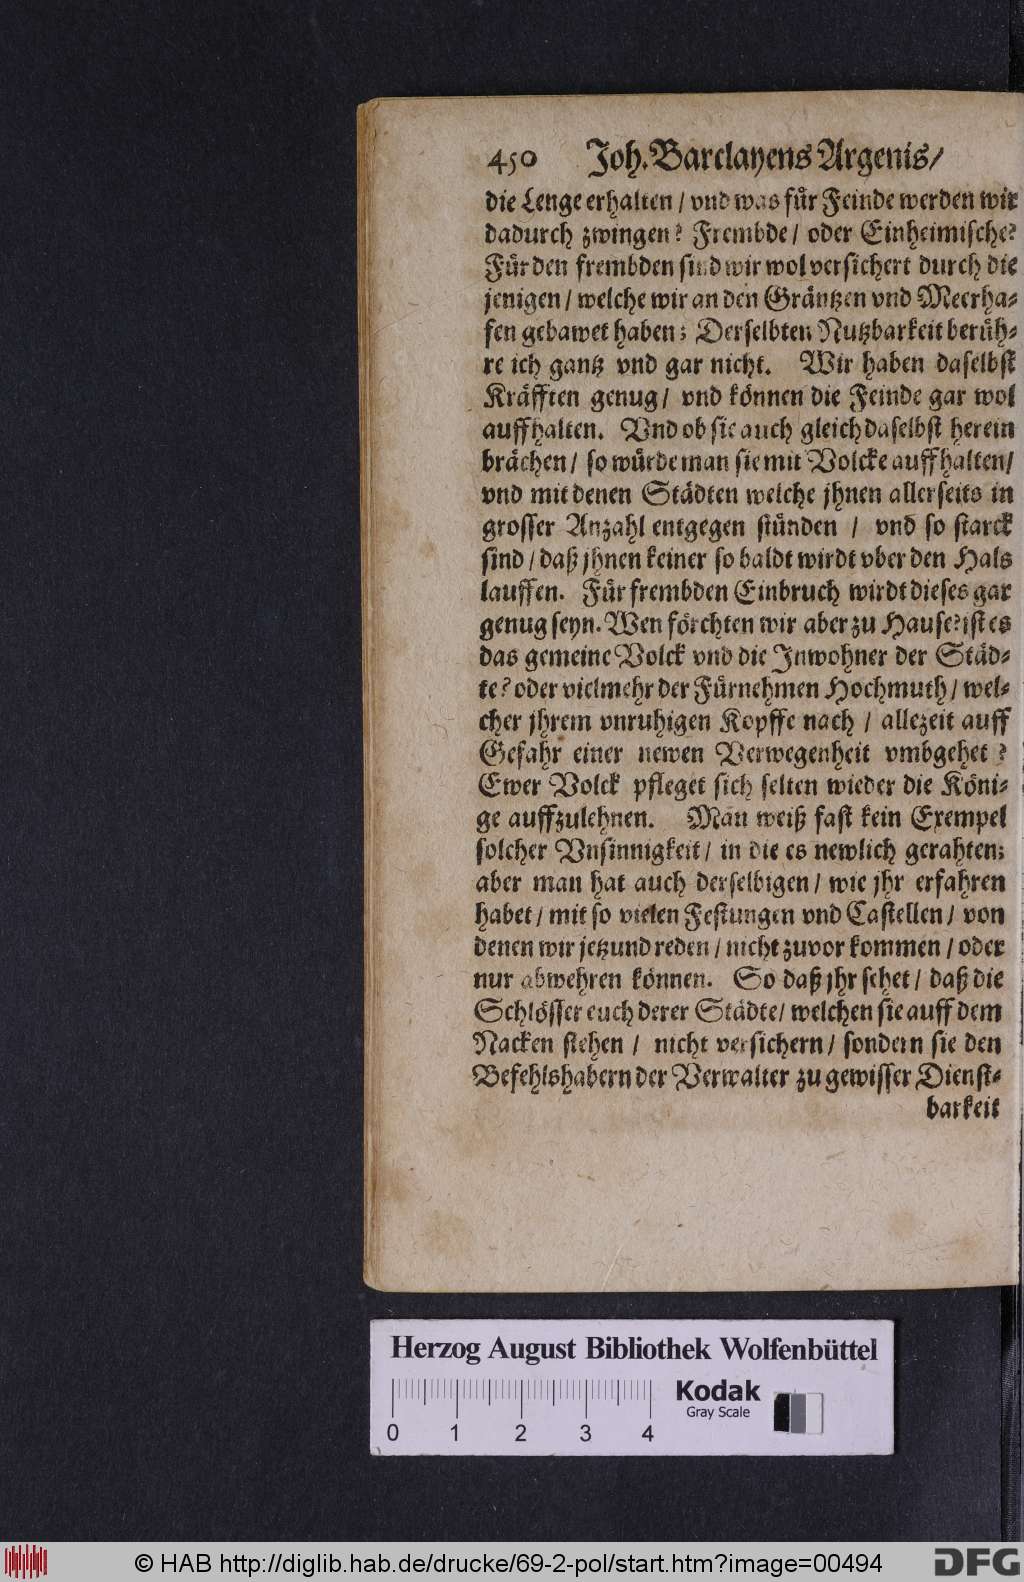 450 Joh. Barclayens Argenis/
die Lenge erhalten / vnd was für Feinde werden wir
dadurch zwingen? Frembde / oder Einheimische?
Für den frembden sind wir wol versichert durch die
jenigen / welche wir an den Gräntzen vnd Meerha-
fen gebawet haben; Derselbten Nutzbarkeit berüh-
re ich gantz vnd gar nicht. Wir haben daselbst
Kräfften genug / vnd können die Feinde gar wol
auffhalten. Vnd ob sie auch gleich daselbst herein
brächen / so würde man sie mit Volcke auffhalten/
vnd mit denen Städten welche jhnen allerseits in
grosser Anzahl entgegen stünden / vnd so starck
sind / daß jhnen keiner so baldt wirdt vber den Hals
lauffen. Für frembden Einbruch wirdt dieses gar
genug seyn. Wen förchten wir aber zu Hause? ist es
das gemeine Volck vnd die Inwohner der Städ-
te? oder vielmehr der Fürnehmen Hochmuth / wel-
cher jhrem vnruhigen Kopffe nach / allezeit auff
Gefahr einer newen Verwegenheit vmbgehet?
Ewer Volck pfleget sich selten wieder die Köni-
ge auffzulehnen. Man weiß fast kein Exempel
solcher Vnsinnigkeit / in die es newlich gerahten;
aber man hat auch derselbigen / wie jhr erfahren
habet / mit so vielen Festungen vnd Castellen / von
denen wir jetzund reden / nicht zuvor kommen / oder
nur abwehren können. So daß jhr sehet / daß die
Schlösser euch derer Städte / welchen sie auff dem
Nacken stehen / nicht versichern / sondern sie den
Befehlshabern der Verwalter zu gewisser Dienst-
barkeit
Herzog August Bibliothek Wolfenbüttel
0 1 2 3 4
Kodak
Gray Scale
© HAB http://diglib.hab.de/drucke/69-2-pol/start.htm?image=00494
DFG